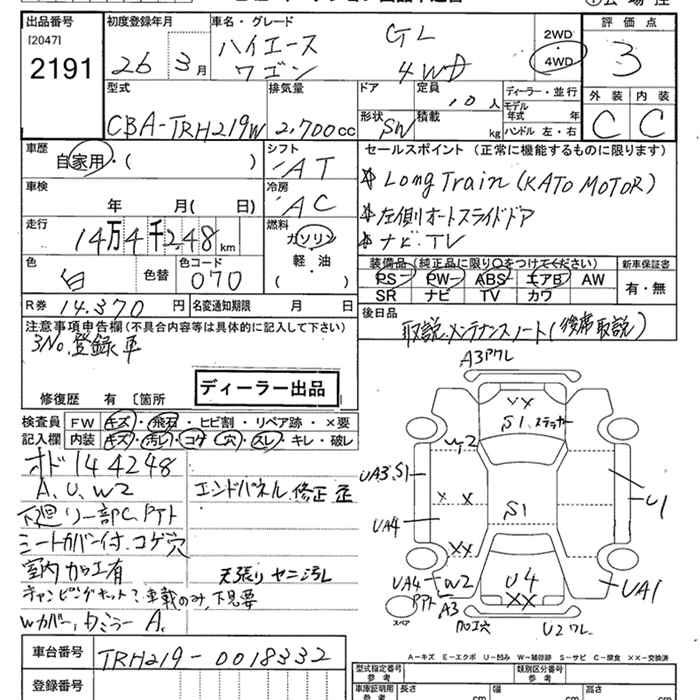 出品番号 初度登録年月 車名・グレード 評価点
[2047]
2191
26年 3月
ハイエース GL
ワゴン 4WD
2WD
4WD
3
型式 排気量 ドア 定員 ディーラー・並行 外装 内装
CBA-TRH219W 2,700cc
形状 SW
積載 kg
10人
モデル年式 年
ハンドル 左・右
C C
車歴 シフト セールスポイント (正常に機能するものに限ります)
自家用・( ) AT
☆Long Train (KATO MOTOR)
車検 冷房
年 月( 日) AC
☆左側オートスライドドア
走行 燃料
14万4千248km ガソリン
☆ナビ.TV
軽・油
( )
色 色替 色コード
白 070
装備品(純正品に限り○をつけてください) 新車保証書
PS PW ABS エアB AW 有・無
SR ナビ TV カワ
R券 14,370円 名変通知期限 月 日
後日品
取説.メンテナンスノート(後席取説)
注意事項申告欄(不具合内容等は具体的に記入して下さい)
3No.登録車
ディーラー出品
修復歴 有 〔箇所
検査員 FW キズ・飛石・ヒビ割・リペア跡・×要
記入欄 内装 キズ・汚れ・コゲ・穴・スレ・キレ・破レ
オド144248
A、U、W2 エンドパネル.修正歪
下廻り一部C、PTト
シートカバー付.コゲ穴
室内加工有 天張りヤニ汚レ
Wカバー,
A.
A3Pワレ
XX
S1.ステッカー
W2
UA3.S1
x x
S1
U1
UA4
XX
UA4 W2
U4
UA1
PPト A3
XX
スペア
加工穴 U2ワレ
A-キズ E-エクボ U-凹み W-補修跡 S-サビ C-腐食 ××-交換済
車台番号 TRH219-0018332
登録番号
型式指定番号 類別区分番号
参考
車庫証明用 長さ 幅 高さ
参考 cm cm cm